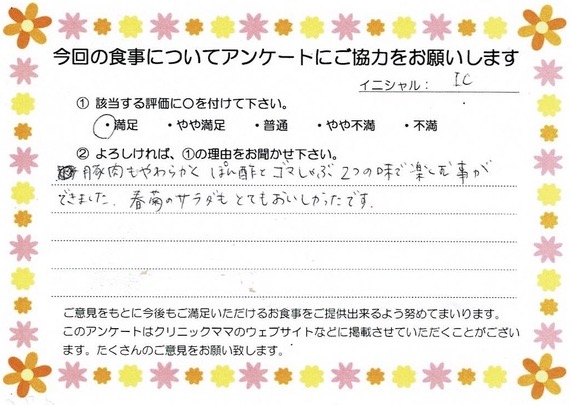 今回の食事についてアンケートにご協力をお願いします
イニシャル： I.C
① 該当する評価に〇を付けて下さい。
・満足 ・やや満足 ・普通 ・やや不満 ・不満
② よろしければ、①の理由をお聞かせ下さい。
豚肉もやわらかく ぽん酢とゴマしゃぶ 2つの味で楽しむ事が
できました。春菊のサラダもとてもおいしかったです。
ご意見をもとに今後もご満足いただけるお食事をご提供出来るよう努めてまいります。
このアンケートはクリニックママのウェブサイトなどに掲載させていただくことがござい
ます。たくさんのご意見をお願い致します。